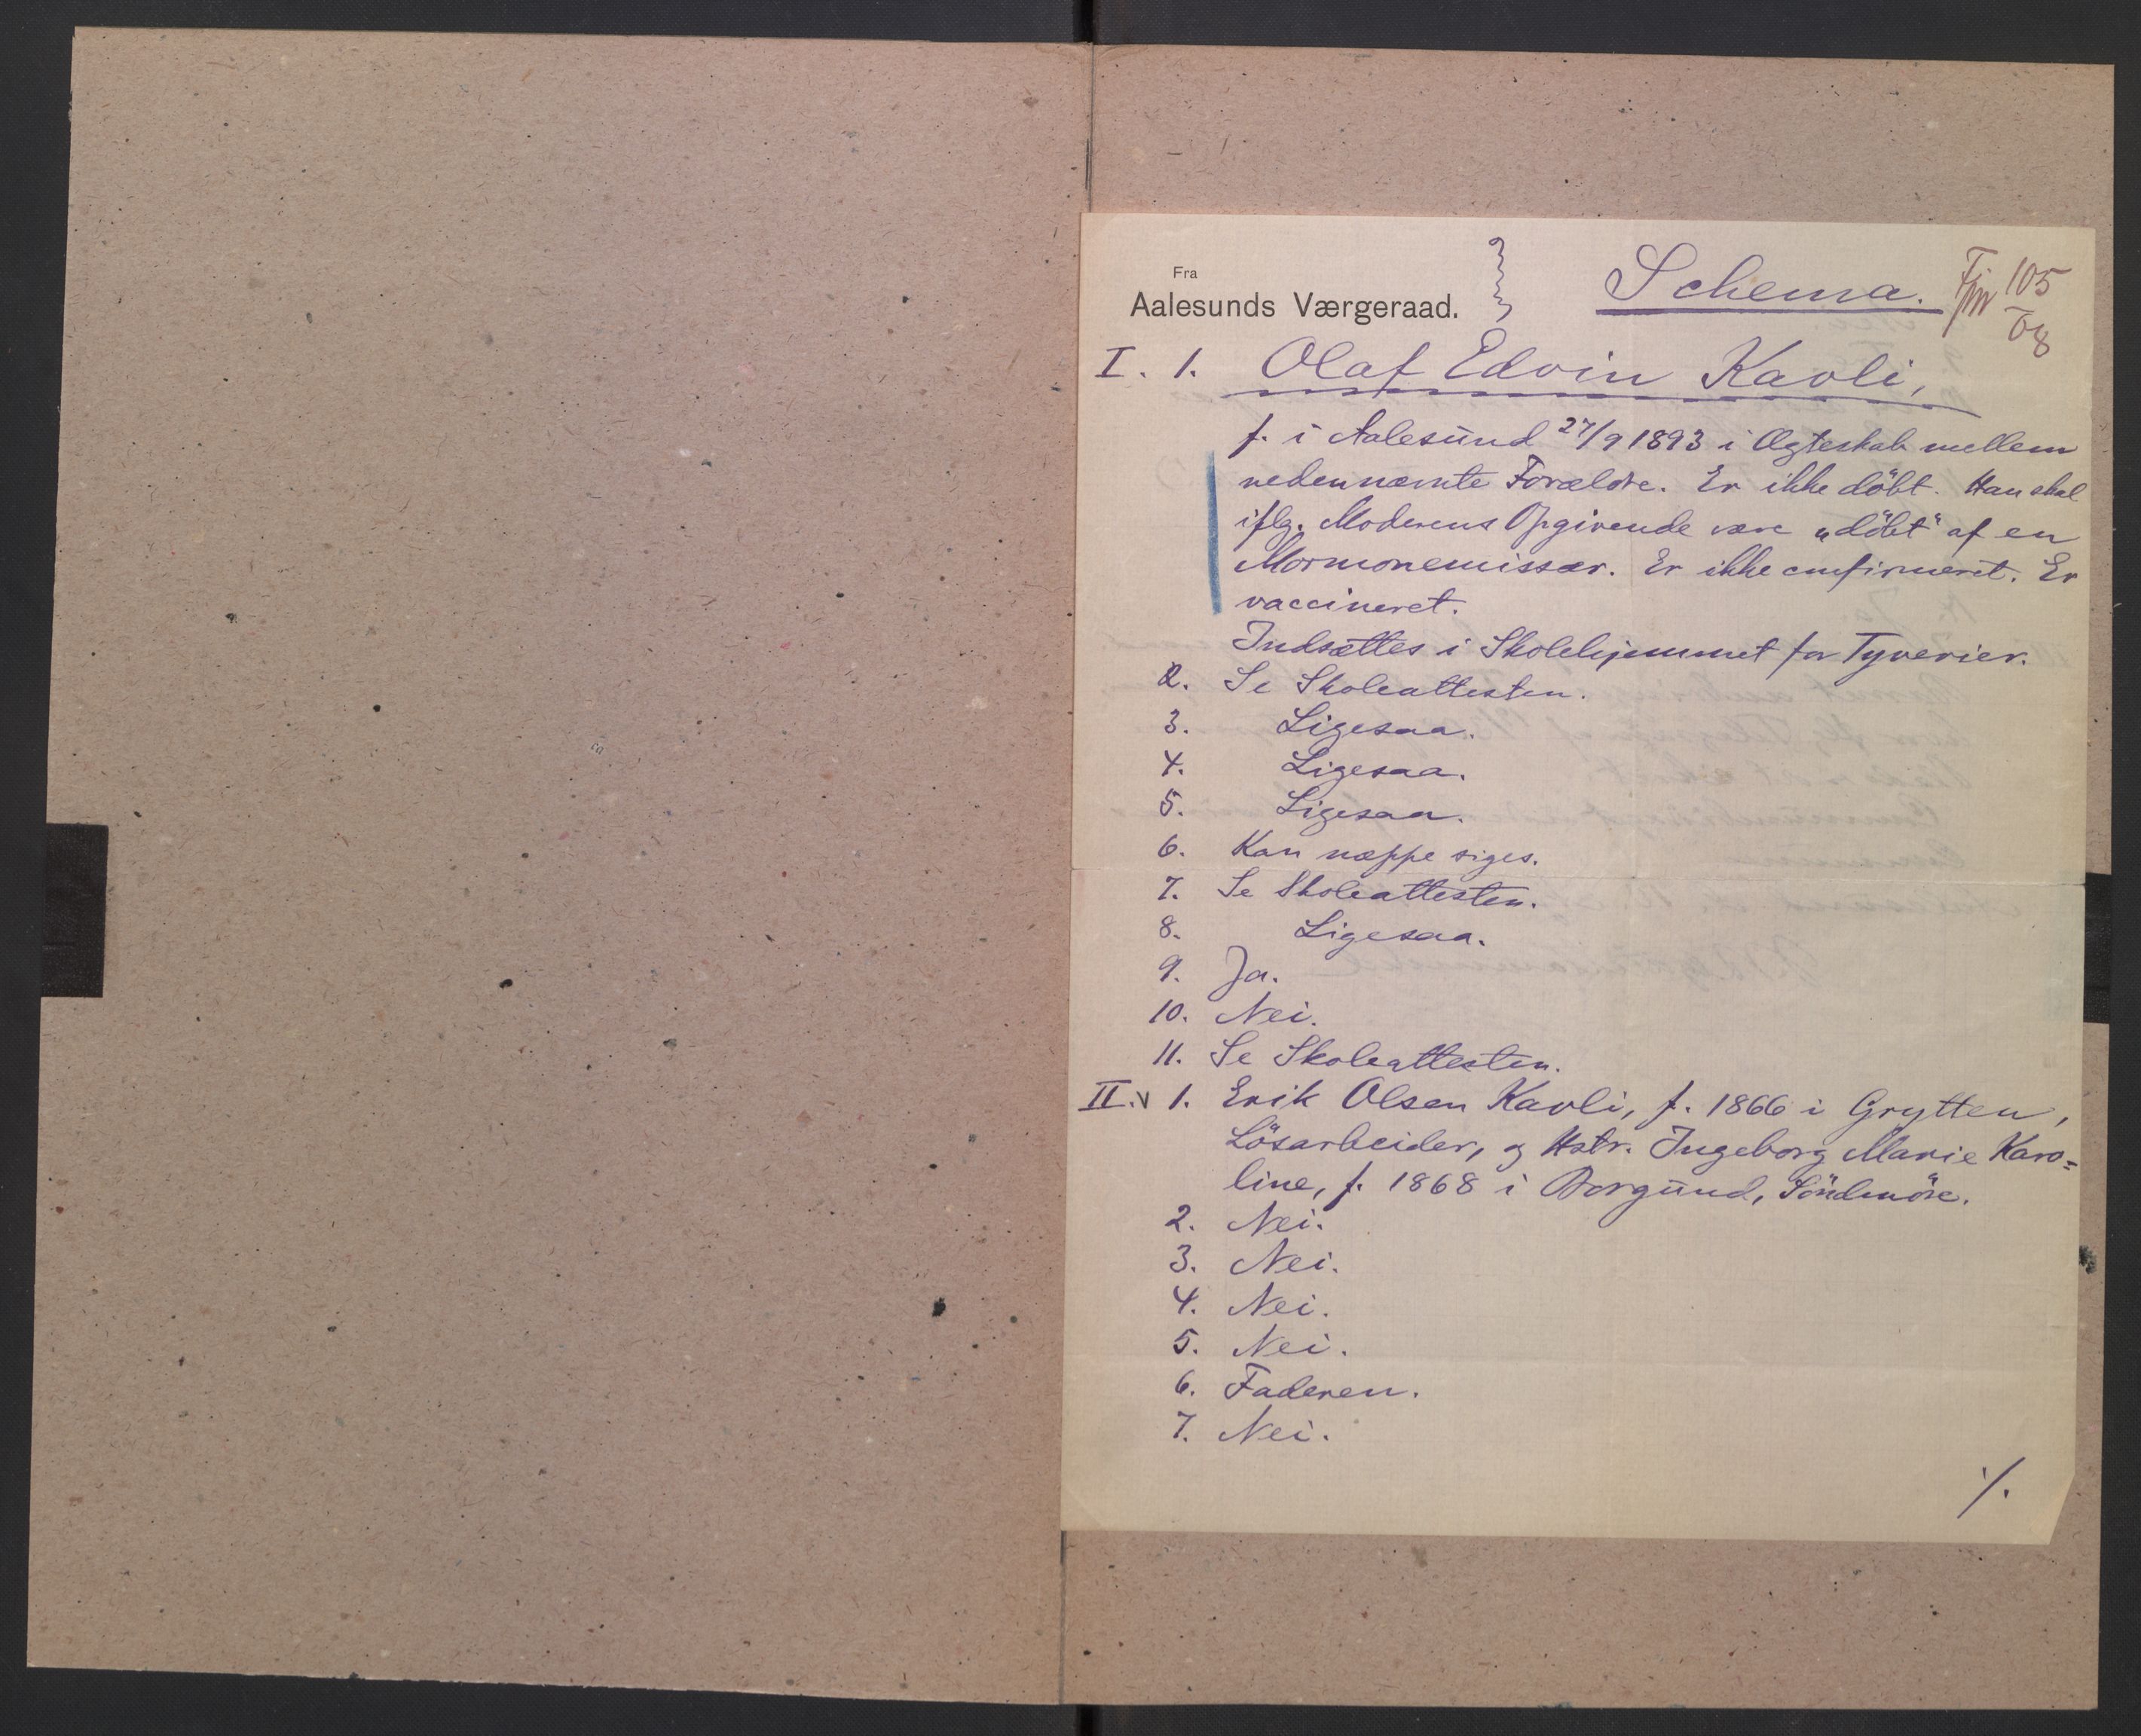 Fra
Aalesunds Værgeraad.
Schema.
105
08
I. 1. Olaf Edvin Kavli,
f. i Aalesund 27/9 1893 i Ægteskab mellem
nedennævnte Forældre. Er ikke döbt. Han skal
iflg. Moderens Opgivende være „döbt" af en
Mormonemissær. Er ikke confirmeret. Er
vaccineret.
Indsættes i Skolehjemmet for Tyverier.
2. Se Skoleattesten.
3. Ligesaa.
4. Ligesaa.
5. Ligesaa.
6. Kan næppe siges.
7. Se Skoleattesten.
8. Ligesaa.
9. Ja.
10. Nei.
11. Se Skoleattesten.
II. 1. Erik Olsen Kavli, f. 1866 i Grytten,
Lösarbeider, og Hstr. Ingeborg Marie Karo=
line, f. 1868 i Borgund, Söndmöre.
2. Nei.
3. Nei.
4. Nei.
5. Nei.
6. Faderen.
7. Nei.
./.